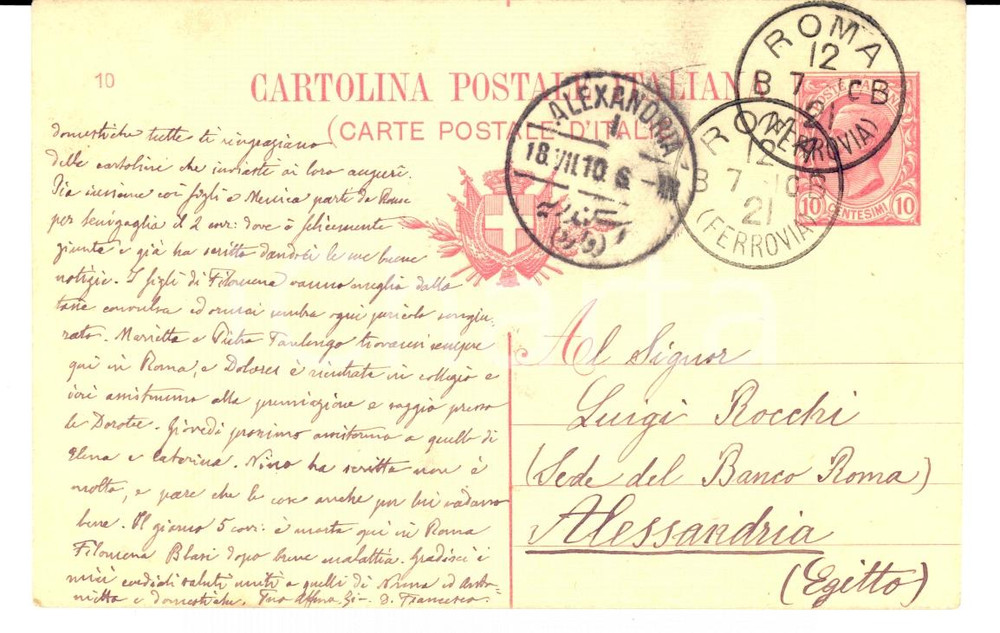 10
CARTOLINA POSTALE ITALIANA
(CARTE POSTALE D'ITALIE)
ROMA
12
B 7 - 10 B
21
(FERROVIA)
ROMA
12
B 7 - 10 B
21
(FERROVIA)
ALEXANDRIA
1
18.VII.10. 6 -
POSTE ITALIANE
10 CENTESIMI 10
domestiche tutte ti ringraziano
delle cartoline che inviaste ai loro auguri.
Pia insieme coi figli e Menica parte da Roma
per Senigaglia il 2 corr: dove è felicemente
giunta e già ha scritto dandoci le sue buone
notizie. I figli di Filomena vanno meglio dalla
tosse convulsa ed ormai sembra ogni pericolo scongiu-
rato. Marietta e Pietro trovansi sempre
qui in Roma, e Dolores è rientrata in collegio e
ieri assistemmo alla premiazione e saggio presso
le Dorotee. Giovedì prossimo assisteremo a quello di
Elena e Caterina. Nino ha scritto non è
molto, e pare che le cose anche per lui vadano
bene. Il giorno 5 corr: è morta qui in Roma
Filomena Blasi dopo breve malattia. Gradisci i
miei cordiali saluti uniti a quelli di Nonna ed Anto-
nietta e domestiche. Tuo Affmo Francesco
Al Signor
Luigi Rocchi
(Sede del Banco Roma)
Alessandria
(Egitto)